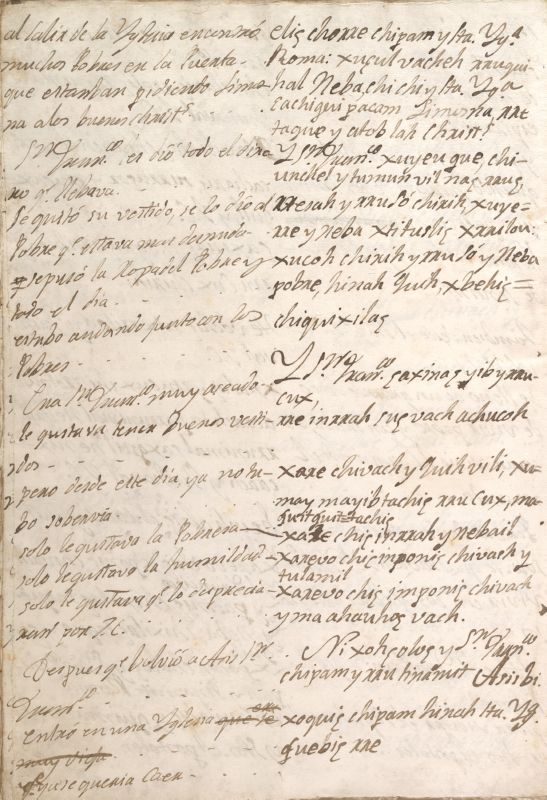 al salir de la Yglesia encontró
muchos Pobres en la Puerta
que estanban pidiendo limos
na a los buenos christ.s
Sn. Fran.co les dió todo el dine
ro q.e llebava.
Se quitó su vestido, se lo dio al
Pobre q.e estava mas desnudo
y se puso la Ropa del Pobre y
todo el dia
estubo andando junto con los
Pobres.
Era Sn. Fran.co muy aseado
le gustava tener buenos vesti
dos
pero desde este dia, ya no hu
bo sobervia
solo le gustava la Pobresa
solo le gustava la humildad
solo le gustava q.e lo desprecia
ran por
Despues q.e bolvió a Asis Sn.
Fran.co
entró en una Yglesia que se
muy vieja
q.e ya se queria Caer
elis chorre chipam y Sta. Yg.a
Roma: xucul vackeh rruqui
hal Neba chichi y Sta. Yg.a
cachiqui pacam Limosna, rre
taque y atob lah Christ.s
Y Sn. Fran.co xuyeu que, chi
unchel y tumuh vil nas rruç
rresah y rruso chirih, xuye
rre y neba xtituslis
xucoh chirih y rruso y Neba
pobre, hinah Quih, xbehiç=
chiquixilaç
Y Sn. Fran.co y ib y rru
cux,
rre inrrah suç vach achucoh
xare chivach y Quih vili, xu
may mayib tachiç rru Cux, ma
quit quit tachiç
xare chiç inrrah y nebail
xarevo chiç imponiç chivach y
tulamil
xarevo chiç imponiç chivach
y ma ahauhoç vach.
Nixoh y Sn. Fran.co
chipam y rru tinamit Asis bi
xoquiç chipam hinah Sta. Yg.
quebiç rre